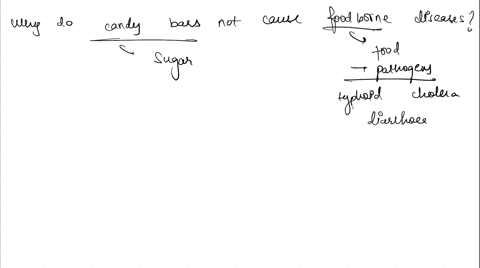 why do candy bars not cause foodborne diseases?
Sugar
food
→ pathogens
typhoid cholera
diarrhoea